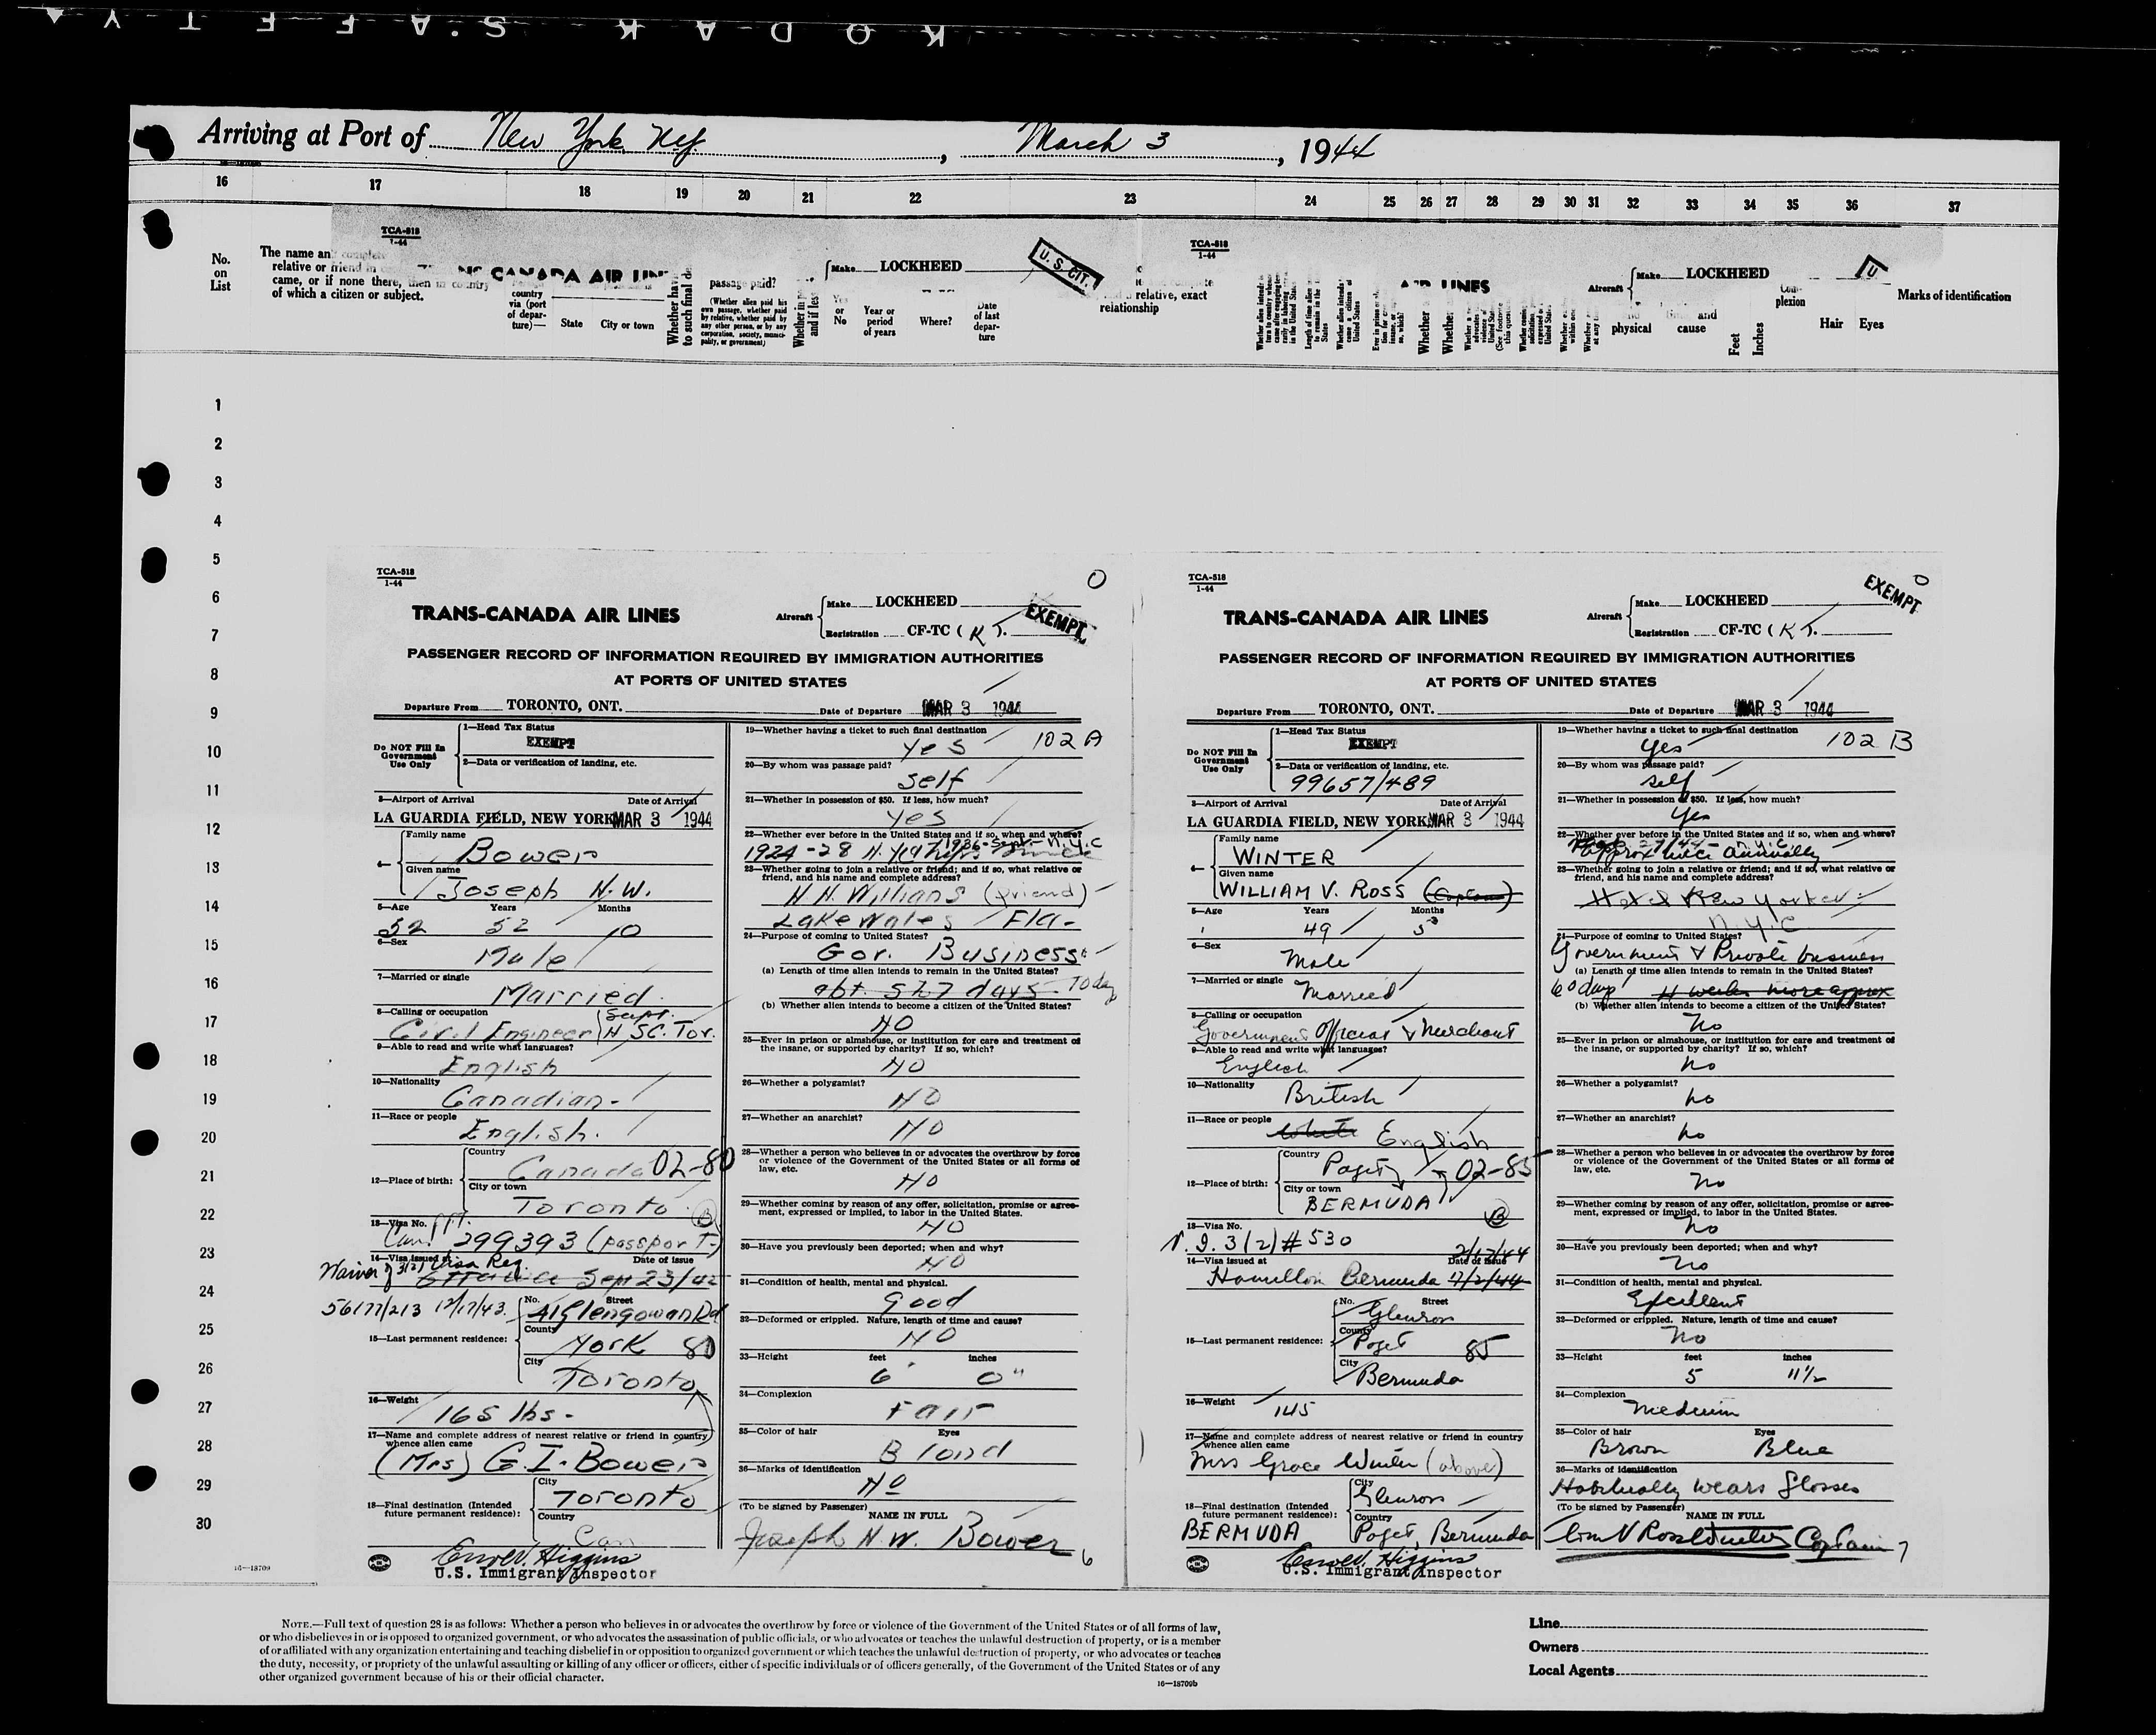 KODAK S.AFETY
Arriving at Port of New York NY, March 3, 1944
16 17 18 19 20 21 22 23 24 25 26 27 28 29 30 31 32 33 34 35 36 37
TCA-518
1-44
No.
on
List
The name and complete
relative or friend in
came, or if none there, then in country
of which a citizen or subject.
CANADA AIR LIN
country
via (port
of depar-
ture)—
State
City or town
Whether hav
to such final de
passage paid?
(Whether alien paid his
own passage, whether paid
by relative, whether paid by
any other person, or by any
corporation, society, munici-
pality, or government)
Make LOCKHEED
Yes
or
No
Year or
period
of years
Where?
Date
of last
depar-
ture
U. S. CIT.
relative, exact
relationship
TCA-518
1-44
AIR LINES
Aircraft
Make LOCKHEED
U
physical
and
cause
Feet
Inches
Com-
plexion
Hair
Eyes
Marks of identification
1
2
3
4
5
6
7
8
9
10
11
12
13
14
15
16
17
18
19
20
21
22
23
24
25
26
27
28
29
30
16—18709
TCA-518
1-44
0
TRANS-CANADA AIR LINES
Aircraft
Make LOCKHEED
Registration CF-TC ( K ).
EXEMPT
PASSENGER RECORD OF INFORMATION REQUIRED BY IMMIGRATION AUTHORITIES
AT PORTS OF UNITED STATES
Departure From TORONTO, ONT. Date of Departure MAR 3 1944
Do NOT Fill In
Government
Use Only
1—Head Tax Status
EXEMPT
2—Data or verification of landing, etc.
3—Airport of Arrival Date of Arrival
LA GUARDIA FIELD, NEW YORK MAR 3 1944
4—
Family name
Bower
Given name
Joseph N.W.
5—Age Years Months
52 52 10
6—Sex
Male
7—Married or single
Married
8—Calling or occupation
Civil Engineer Supt. H SC. Tor.
9—Able to read and write what languages?
English
10—Nationality
Canadian-
11—Race or people
English.
12—Place of birth:
Country
Canada 02-80
City or town
Toronto B
13—Visa No.
Can. PPT. 299393 (passport)
14—Visa issued at Date of issue
Waiver of 3(2) Visa Reg.
Ottawa Sept 23/42
56177/213 12/17/43.
15—Last permanent residence:
No. Street
41 Glengowan Rd
County
York 80
City
Toronto
16—Weight
165 lbs-
17—Name and complete address of nearest relative or friend in country
whence alien came
(Mrs) G.I. Bower
18—Final destination (Intended
future permanent residence):
City
Toronto
Country
Can
Errol V. Higgins
U.S. Immigrant Inspector
19—Whether having a ticket to such final destination
yes 102 A
20—By whom was passage paid?
self
21—Whether in possession of $50. If less, how much?
yes
22—Whether ever before in the United States and if so, when and where?
1924-28 N.Y. 1936-Sept.-N.Y.C
23—Whether going to join a relative or friend; and if so, what relative or
friend, and his name and complete address?
H. N. Williams (friend)
Lake Wales Fla-
24—Purpose of coming to United States?
Gov. Business
(a) Length of time alien intends to remain in the United States?
abt. 5 to 7 days. 10 day
(b) Whether alien intends to become a citizen of the United States?
NO
25—Ever in prison or almshouse, or institution for care and treatment of
the insane, or supported by charity? If so, which?
NO
26—Whether a polygamist?
NO
27—Whether an anarchist?
NO
28—Whether a person who believes in or advocates the overthrow by force
or violence of the Government of the United States or all forms of
law, etc.
NO
29—Whether coming by reason of any offer, solicitation, promise or agree-
ment, expressed or implied, to labor in the United States.
NO
30—Have you previously been deported; when and why?
NO
31—Condition of health, mental and physical.
Good
32—Deformed or crippled. Nature, length of time and cause?
NO
33—Height feet inches
6' 0"
34—Complexion
Fair
35—Color of hair Eyes
Blond
36—Marks of identification
NO
(To be signed by Passenger)
NAME IN FULL
Joseph N. W. Bower 6
TCA-518
1-44
0
TRANS-CANADA AIR LINES
Aircraft
Make LOCKHEED
Registration CF-TC ( K ).
EXEMPT
PASSENGER RECORD OF INFORMATION REQUIRED BY IMMIGRATION AUTHORITIES
AT PORTS OF UNITED STATES
Departure From TORONTO, ONT. Date of Departure MAR 3 1944
Do NOT Fill In
Government
Use Only
1—Head Tax Status
EXEMPT
2—Data or verification of landing, etc.
99657/489
3—Airport of Arrival Date of Arrival
LA GUARDIA FIELD, NEW YORK MAR 3 1944
4—
Family name
WINTER
Given name
WILLIAM V. ROSS (Captain)
5—Age Years Months
49 5
6—Sex
Male
7—Married or single
Married
8—Calling or occupation
Government Official & Merchant
9—Able to read and write what languages?
English
10—Nationality
British
11—Race or people
White English
12—Place of birth:
Country
Paget 02-85
City or town
BERMUDA
B
13—Visa No.
V. I. 3(2) # 530 2/12/44
14—Visa issued at Date of issue
Hamilton Bermuda 12/2/44
15—Last permanent residence:
No. Street
Glenros
County
Paget 85
City
Bermuda
16—Weight
145
17—Name and complete address of nearest relative or friend in country
whence alien came
Mrs Grace Winter (above)
18—Final destination (Intended
future permanent residence):
BERMUDA
City
Glenros
Country
Paget, Bermuda
Errol V. Higgins
U.S. Immigrant Inspector
19—Whether having a ticket to such final destination
yes 102 B
20—By whom was passage paid?
self
21—Whether in possession of $50. If less, how much?
Yes
22—Whether ever before in the United States and if so, when and where?
N.Y.C.
Approx twice annually
23—Whether going to join a relative or friend; and if so, what relative or
friend, and his name and complete address?
Hotel New Yorker
N.Y.C
24—Purpose of coming to United States?
Government & Private business
(a) Length of time alien intends to remain in the United States?
60 days 4 weeks more approx
(b) Whether alien intends to become a citizen of the United States?
No
25—Ever in prison or almshouse, or institution for care and treatment of
the insane, or supported by charity? If so, which?
No
26—Whether a polygamist?
No
27—Whether an anarchist?
No
28—Whether a person who believes in or advocates the overthrow by force
or violence of the Government of the United States or all forms of
law, etc.
No
29—Whether coming by reason of any offer, solicitation, promise or agree-
ment, expressed or implied, to labor in the United States.
No
30—Have you previously been deported; when and why?
No
31—Condition of health, mental and physical.
Excellent
32—Deformed or crippled. Nature, length of time and cause?
No
33—Height feet inches
5 11½
34—Complexion
Medium
35—Color of hair Eyes
Brown Blue
36—Marks of identification
Habitually wears Glasses
(To be signed by Passenger)
NAME IN FULL
Wm V Ross Winter Captain 7
NOTE.—Full text of question 28 is as follows: Whether a person who believes in or advocates the overthrow by force or violence of the Government of the United States or of all forms of law,
or who disbelieves in or is opposed to organized government, or who advocates the assassination of public officials, or who advocates or teaches the unlawful destruction of property, or is a member
of or affiliated with any organization entertaining and teaching disbelief in or opposition to organized government or which teaches the unlawful destruction of property, or who advocates or teaches
the duty, necessity, or propriety of the unlawful assaulting or killing of any officer or officers, either of specific individuals or of officers generally, of the Government of the United States or of any
other organized government because of his or their official character.
16—18709b
Line
Owners
Local Agents